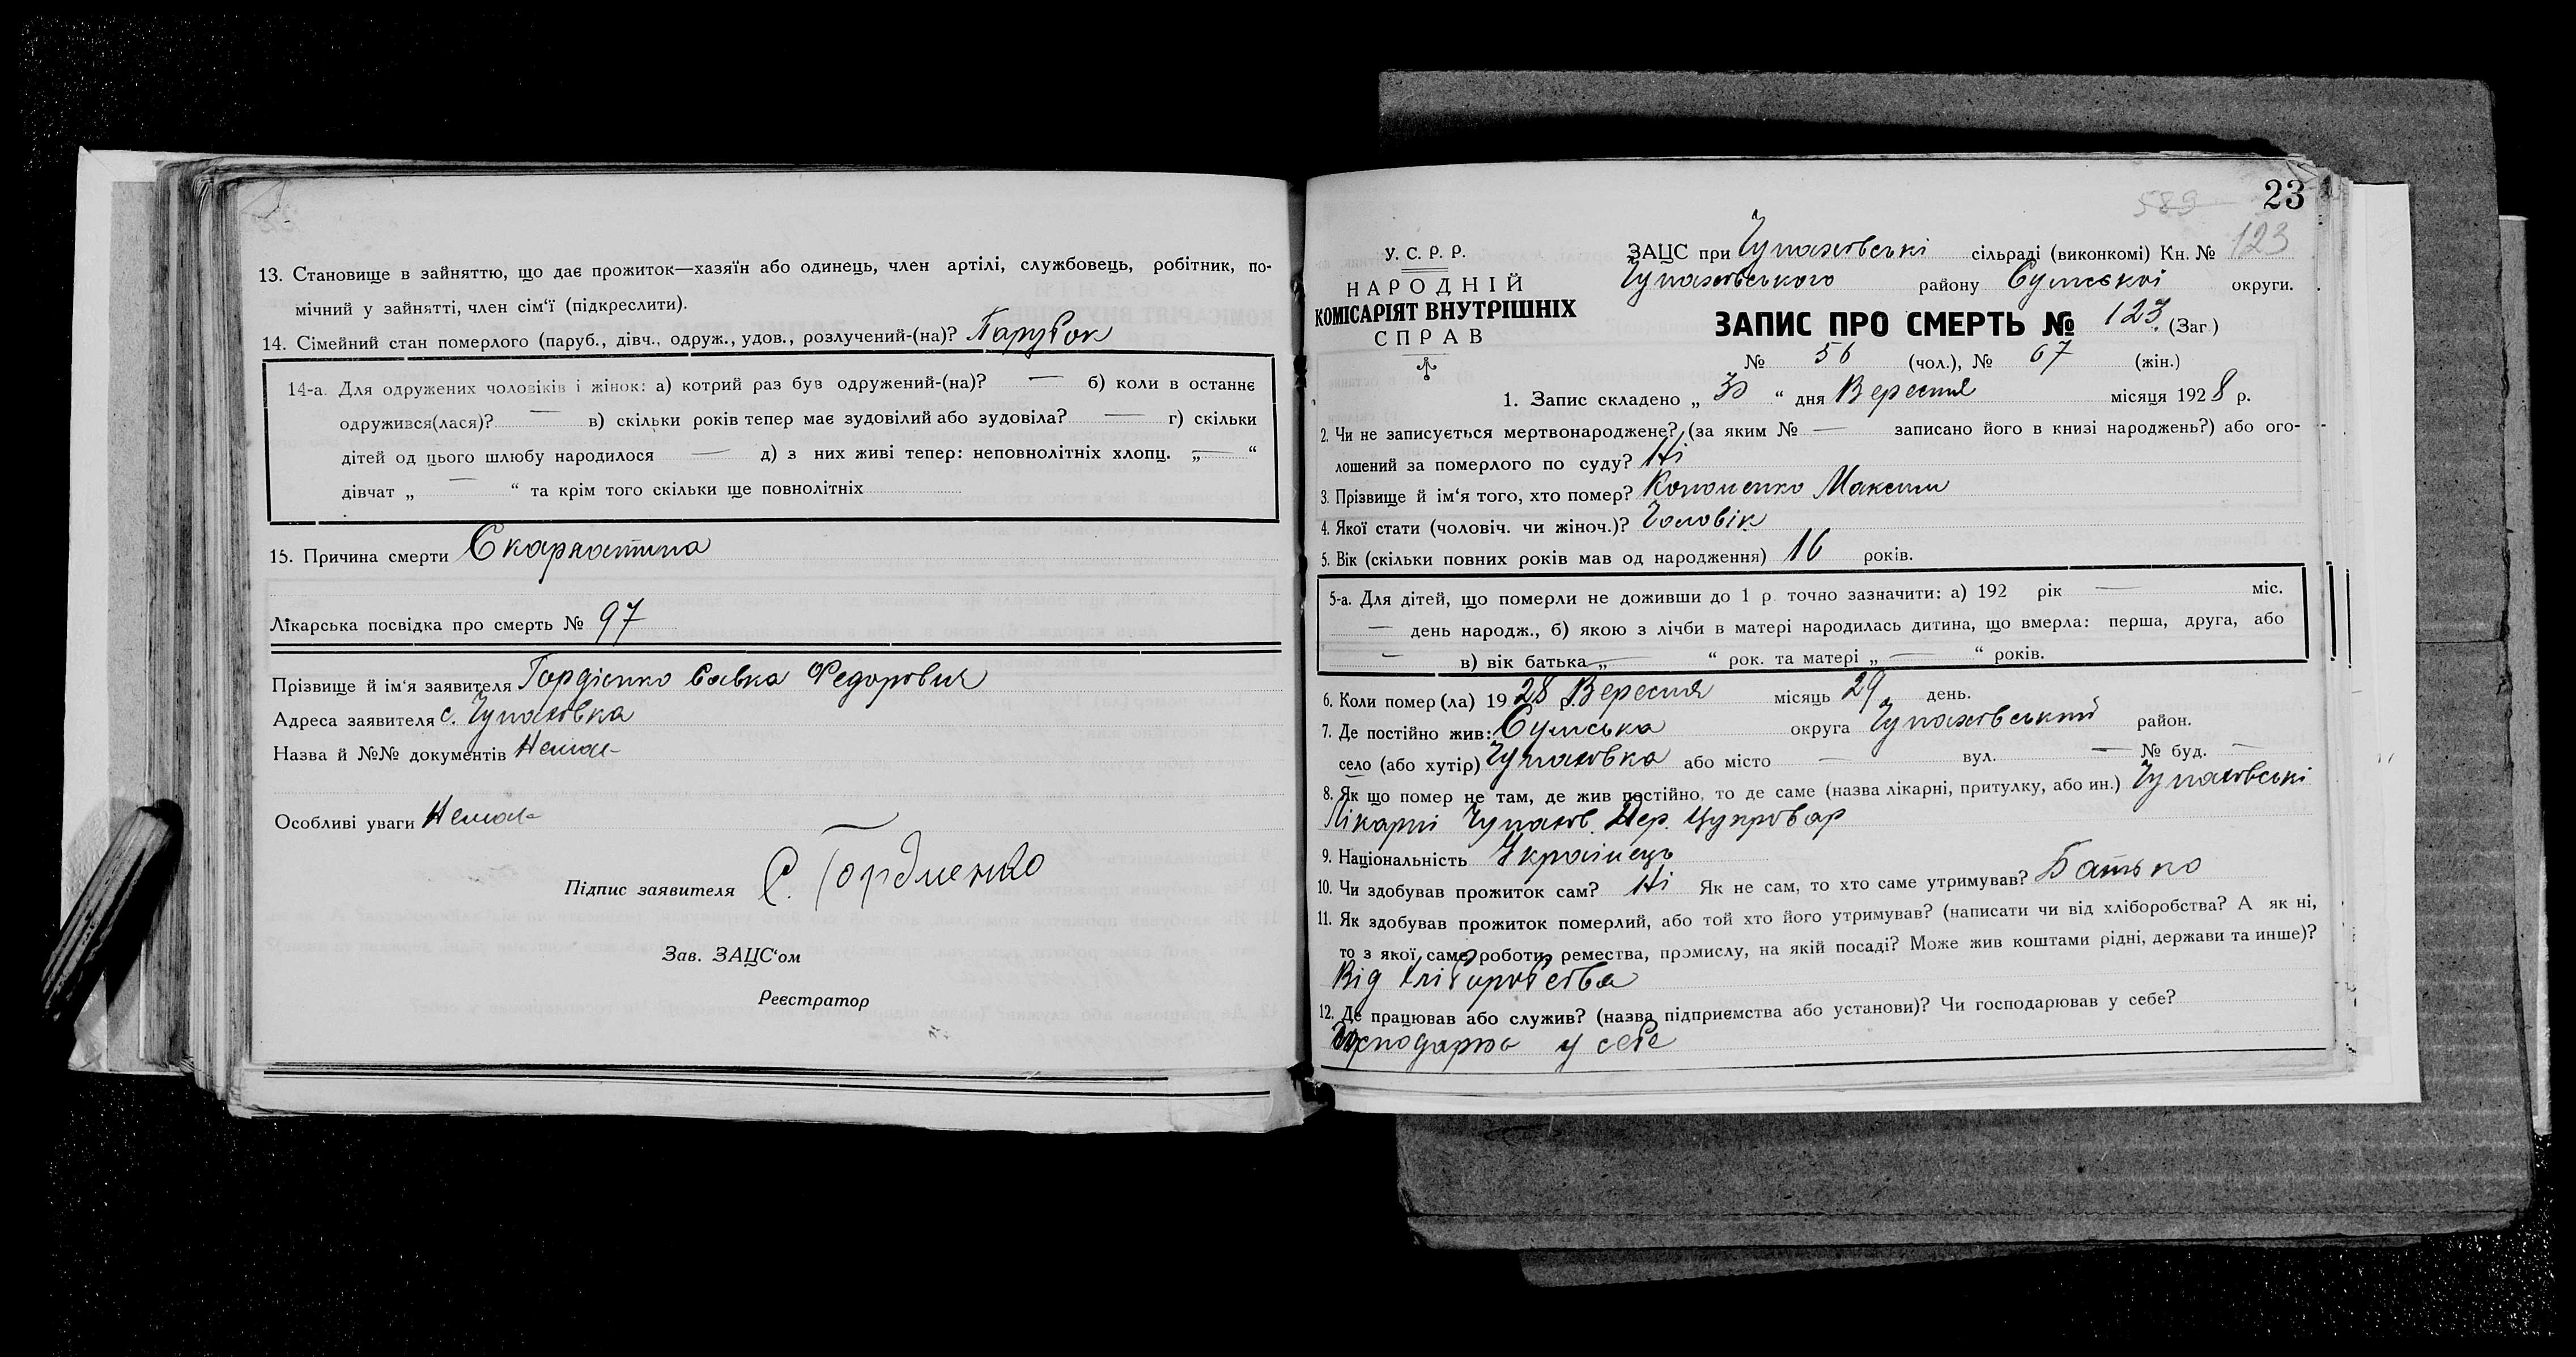 13. Становище в зайняттю, що дає прожиток—хазяїн або одинець, член артілі, службовець, робітник, по-
мічний у зайнятті, член сім'ї (підкреслити).
14. Сімейний стан померлого (паруб., дівч., одруж., удов., розлучений-(на)? Парубок
14-а. Для одружених чоловіків і жінок: а) котрий раз був одружений-(на)? — б) коли в останнє
одружився(лася)? — в) скільки років тепер має зудовілий або зудовіла? — г) скільки
дітей од цього шлюбу народилося — д) з них живі тепер: неповнолітніх хлопц. „—“
дівчат „ — “ та крім того скільки ще повнолітніх
15. Причина смерти Скарлатина
Лікарська посвідка про смерть № 97
Прізвище й ім'я заявителя Гордієнко Савка Федорович
Адреса заявителя с. Чупахівка
Назва й №№ документів Немає
Особливі уваги Немає
Підпис заявителя С. Гордиенко
Зав. ЗАЦС'ом
Реєстратор
23
589
У. С. Р. Р.
НАРОДНІЙ
КОМІСАРІЯТ ВНУТРІШНІХ
СПРАВ
ЗАЦС при Чупахівські сільраді (виконкомі) Кн. № 123
Чупахівського району Сумської округи.
ЗАПИС ПРО СМЕРТЬ № 123 (Заг.)
№ 56 (чол.), № 67 (жін.)
1. Запис складено „ 30 “ дня Вересня місяця 1928 р.
2. Чи не записується мертвонароджене? (за яким № — записано його в книзі народжень?) або ого-
лошений за померлого по суду? Ні
3. Прізвище й ім'я того, хто помер? Кононенко Максим
4. Якої стати (чоловіч. чи жіноч.)? Чоловік
5. Вік (скільки повних років мав од народження) 16 років.
5-а. Для дітей, що померли не доживши до 1 р. точно зазначити: а) 192 рік — міс.
— день народж., б) якою з лічби в матері народилась дитина, що вмерла: перша, друга, або
— в) вік батька „ — “ рок. та матері „ — “ років.
6. Коли помер (ла) 1928 р. Вересня місяць 29 день.
7. Де постійно жив: Сумська округа Чупахівський район.
село (або хутір) Чупахівка або місто — вул. — № буд. —
8. Як що помер не там, де жив постійно, то де саме (назва лікарні, притулку, або ин.) Чупахівські
Лікарні Чупахов. Цукровар
9. Національність Українець
10. Чи здобував прожиток сам? Ні Як не сам, то хто саме утримував? Батько
11. Як здобував прожиток померлий, або той хто його утримував? (написати чи від хліборобства? А як ні,
то з якої саме роботи, ремества, промислу, на якій посаді? Може жив коштами рідні, держави та инше)?
Від хліборобства
12. Де працював або служив? (назва підприємства або установи)? Чи господарював у себе?
Господарює у себе